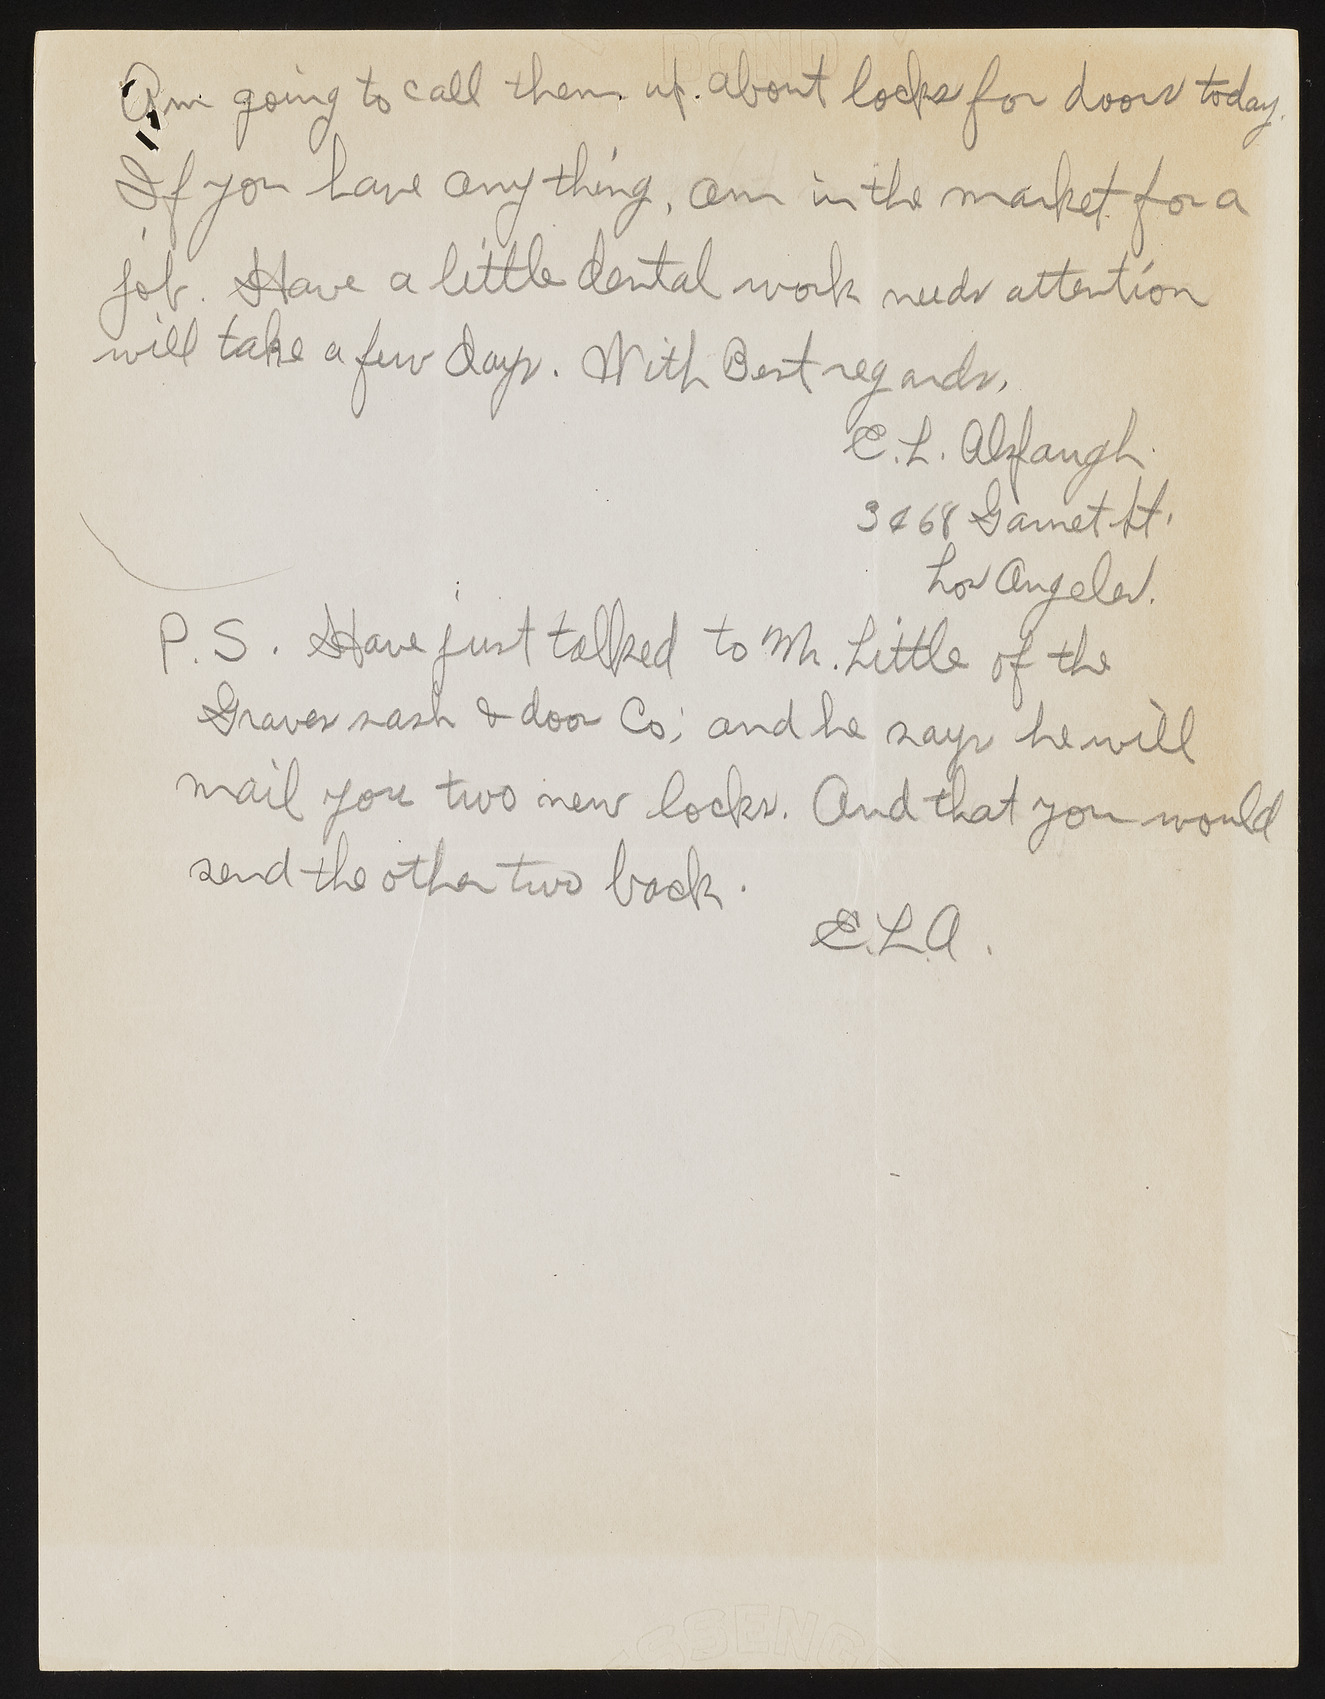 Am going to call them up. about locks for doors today.
If you have any thing, am in the market for a
job. Have a little dental work needs attention
will take a few days. With Best regards,
E. L. Alspaugh.
Garnet St.
Los Angeles.
P. S. Have just talked to Mr. Little of the
Graves sash & door Co; and he says he will
mail you two new locks. And that you would
send the other two back.
E.L.A.